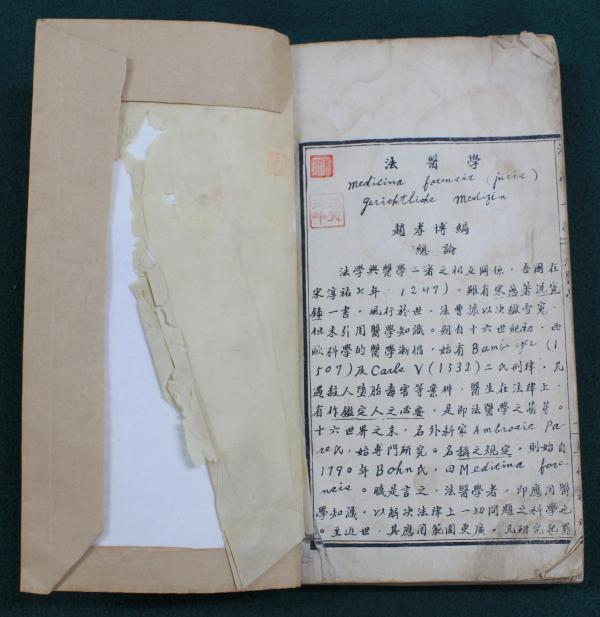 法醫學
medicina forensis (juris)
gerichtliche Medizin
趙孝博編
總論
法學與醫學二者之相互關係，吾國在
宋淳祐七年，1247)，雖有宋慈著洗寃
錄一書，風行於世，法曹據以決獄雪寃，
但未引用醫學知識。朔自十六世紀初，西
欧科學的醫學漸倡，始有Bamberger (1
507)及Carls V (1532)二氏刑律，凡
遇殺人墮胎毒害等案件，醫生在法律上，
有作鑑定人之必要，是即法醫學之萌芽。
十六世界之末，名外科家Ambrosie Pa-
re氏，始專門研究。名稱之規定，則始自
1790年Bohn氏，曰Medicina fore-
nsis。職是言之，法醫學者，即應用醫
學知識，以解决法律上一切問題之科學也
。至近世，其應用範圍更廣，凡研究犯罪